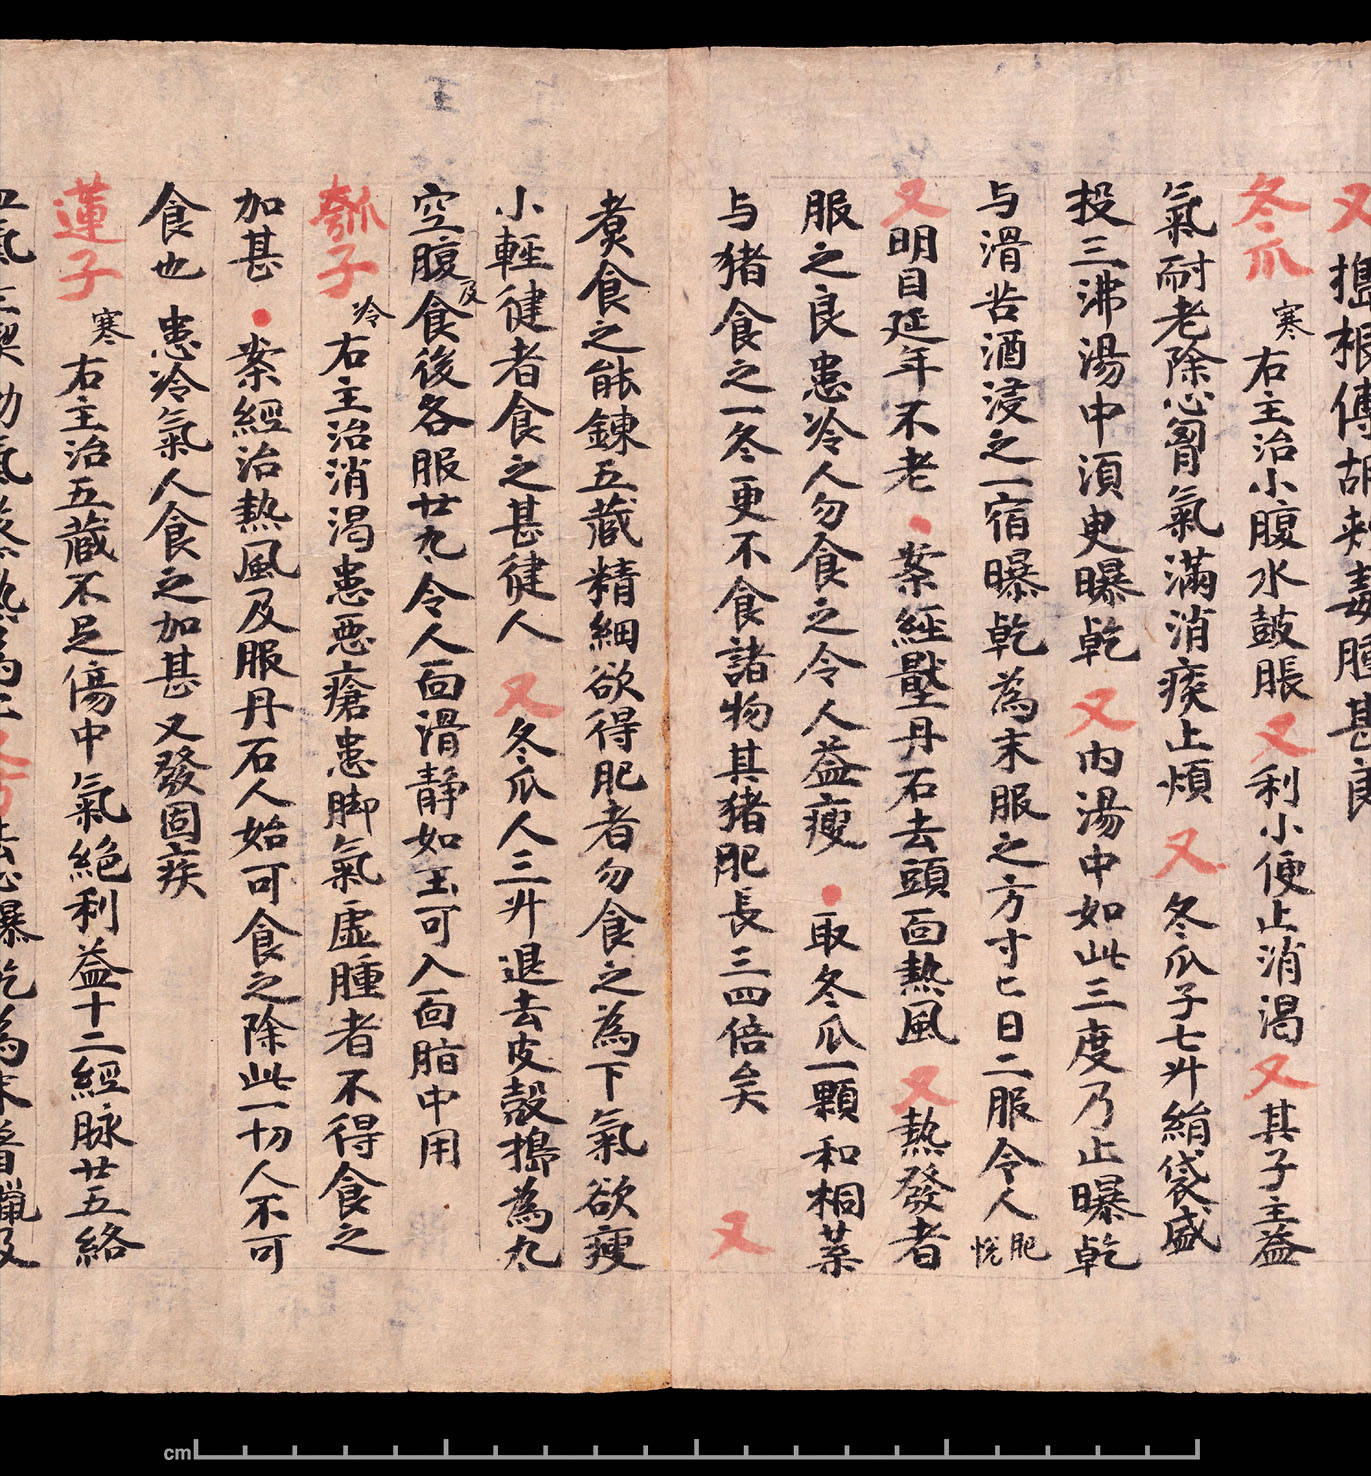 又 搗根傅胡刺毒腫甚良
冬瓜 寒 右主治小腹水鼓脹 又利小便止消渴 又其子主益
氣耐老除心胷氣滿消痰止煩 又 冬瓜子七升絹袋盛
投三沸湯中湏臾曝乾 又內湯中如此三度乃止曝乾
与滑苦酒浸之一宿曝乾為末服之方寸匕日二服令人肥悅
又明目延年不老 案經壓丹石去頭面熱風 又熱發者
服之良患冷人勿食之令人益瘦 取冬瓜一顆和桐葉
与猪食之一冬更不食諸物其猪肥長三四倍矣 又
煑食之能鍊五藏精細欲得肥者勿食之為下氣欲瘦
小輕健者食之甚健人 又冬瓜人三升退去皮殼搗為丸
空腹及食後各服廿丸令人面滑静如玉可入面脂中用
瓠子 冷 右主治消渴患惡瘡患脚氣虛腫者不得食之
加甚 案經治熱風及服丹石人始可食之除此一切人不可
食也 患冷氣人食之加甚 又發固疾
蓮子 寒 右主治五藏不足傷中氣絶利益十二經脉廿五絡